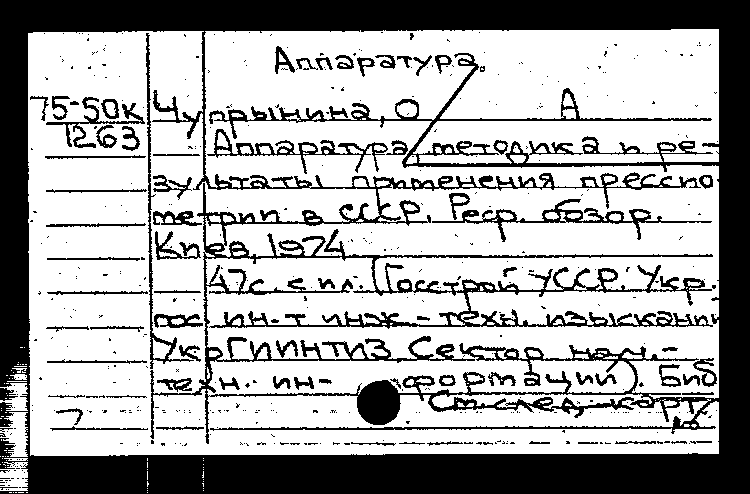 Аппаратура.
75-50к Чупрынина, О А
1263
Аппаратура, методика и ре-
зультаты применения прессио-
метрии в СССР. Реф. обзор.
Киев, 1974
47с. с ил. (Госстрой УССР. Укр.
гос ин-т инж.-техн. изысканий
УкрГИИНТИЗ. Сектор науч.-
техн. ин-формации). Биб
См. след. карт.